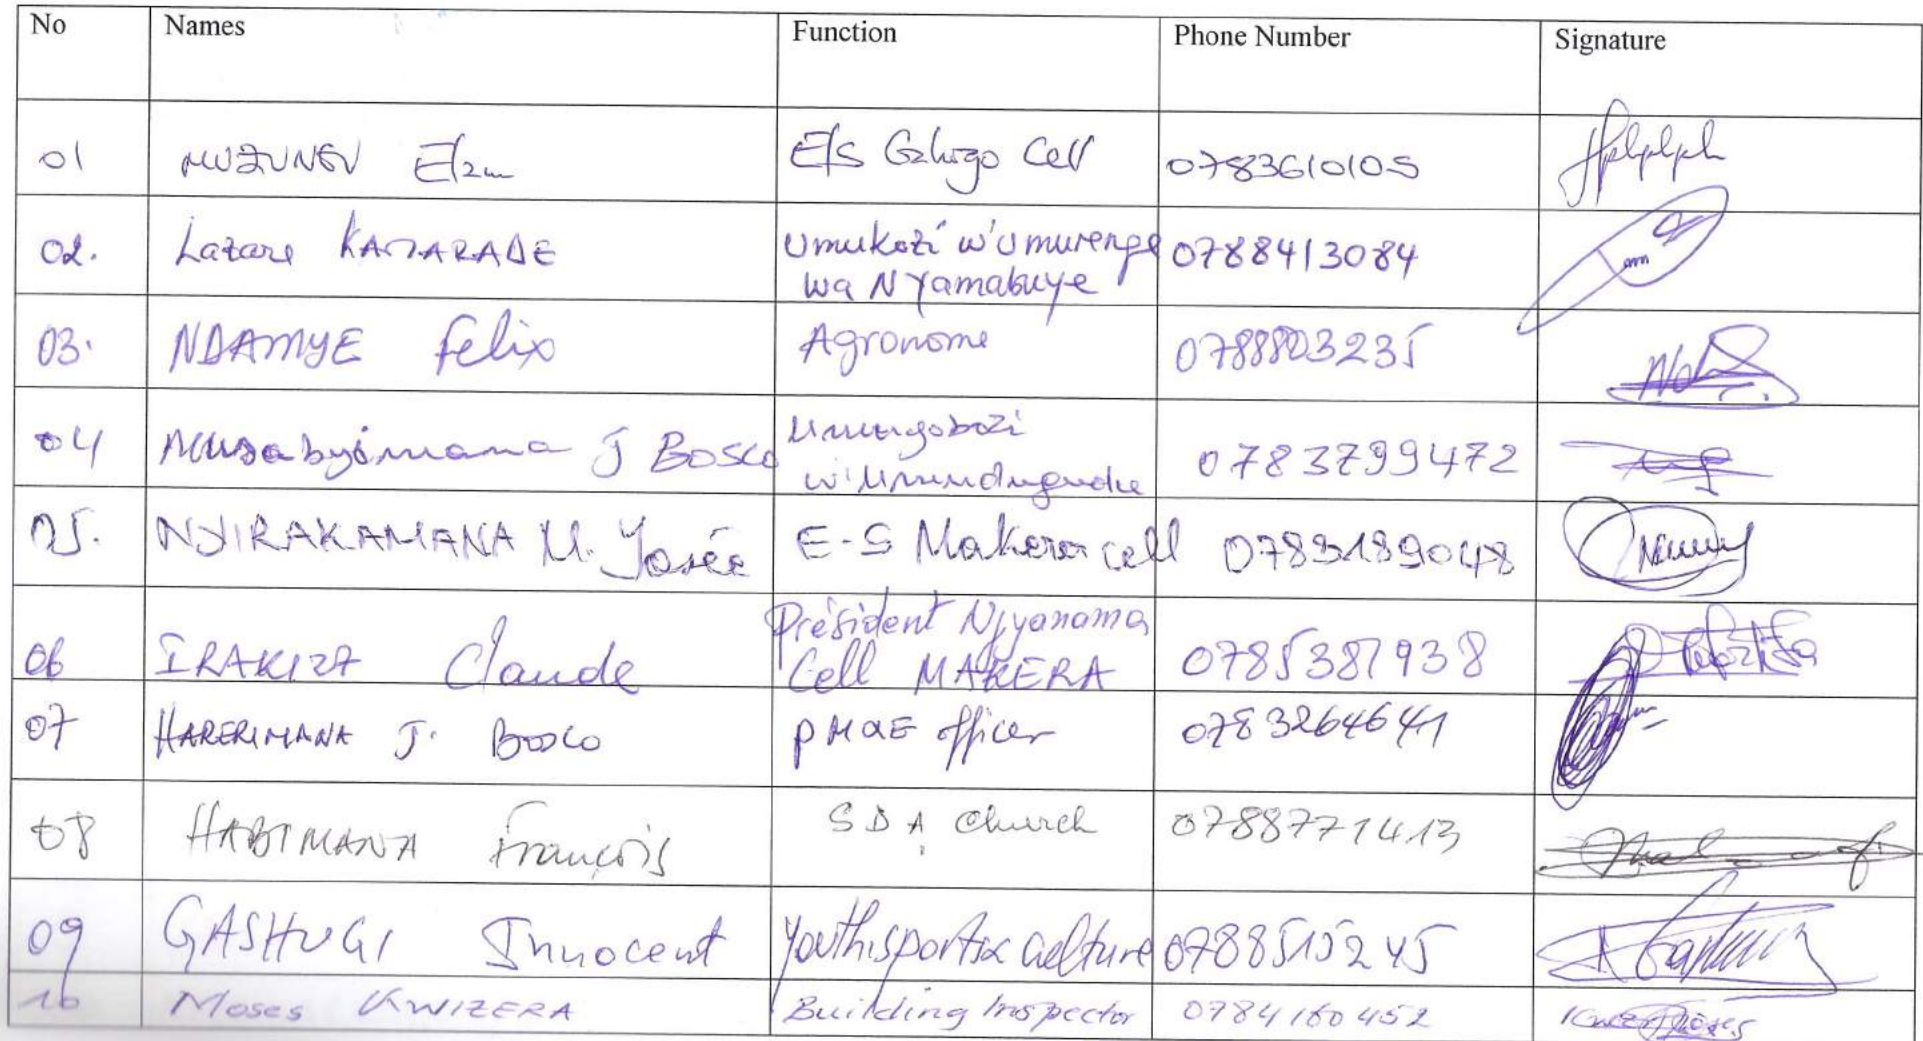 No Names Function Phone Number Signature
01 MUZUNGU E/S Gahogo Cell 0783610105
02. Lazare KAMARADE Umukozi w'umurenge 0788413084
wa NYamabuye
03. NDAMYE Felix Agronome 0788803235
04 Musabyimana J Bosco Umuyobozi 0783799472
w'Umudugudu
05. NYIRAKAMANA M. Josée E-S Makera cell 0783189048
06 IRAKIZA Claude Président Njyanama 0785387938
Cell MAKERA
07 HARERIMANA J. Bosco PM&E officer 0783264641
08 HABIMANA François SDA Church 0788771413
09 GASHUGI Innocent Youth, sport & culture 0788515245
10 Moses KWIZERA Building Inspector 0784160452